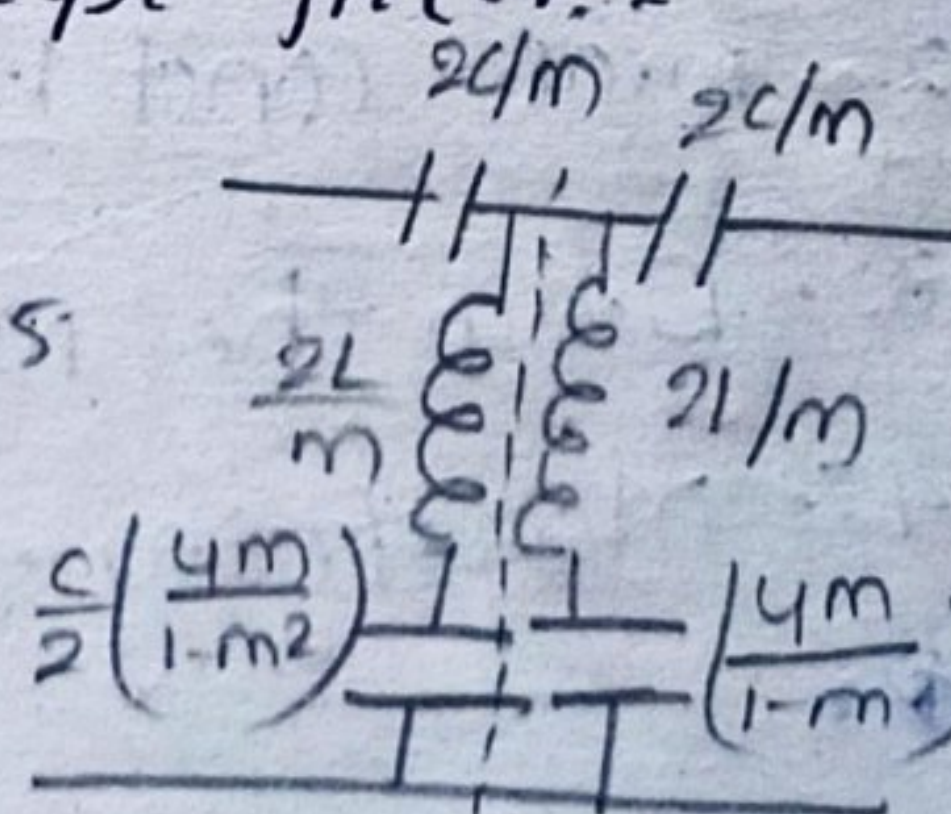 2C/m
2C/m
s
2L/m
2l/m
C/2 (4m/1-m2)
(4m/1-m